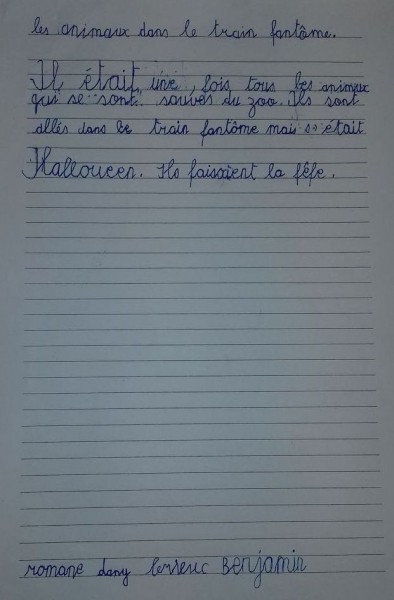 les animaux dans le train fantôme.
Il était une, fois tous les animaux
qui se sont sauvés du zoo. Ils sont
allés dans le train fantôme mais était
Halloween. Ils faisaient la fête.
romane dany Benjamin